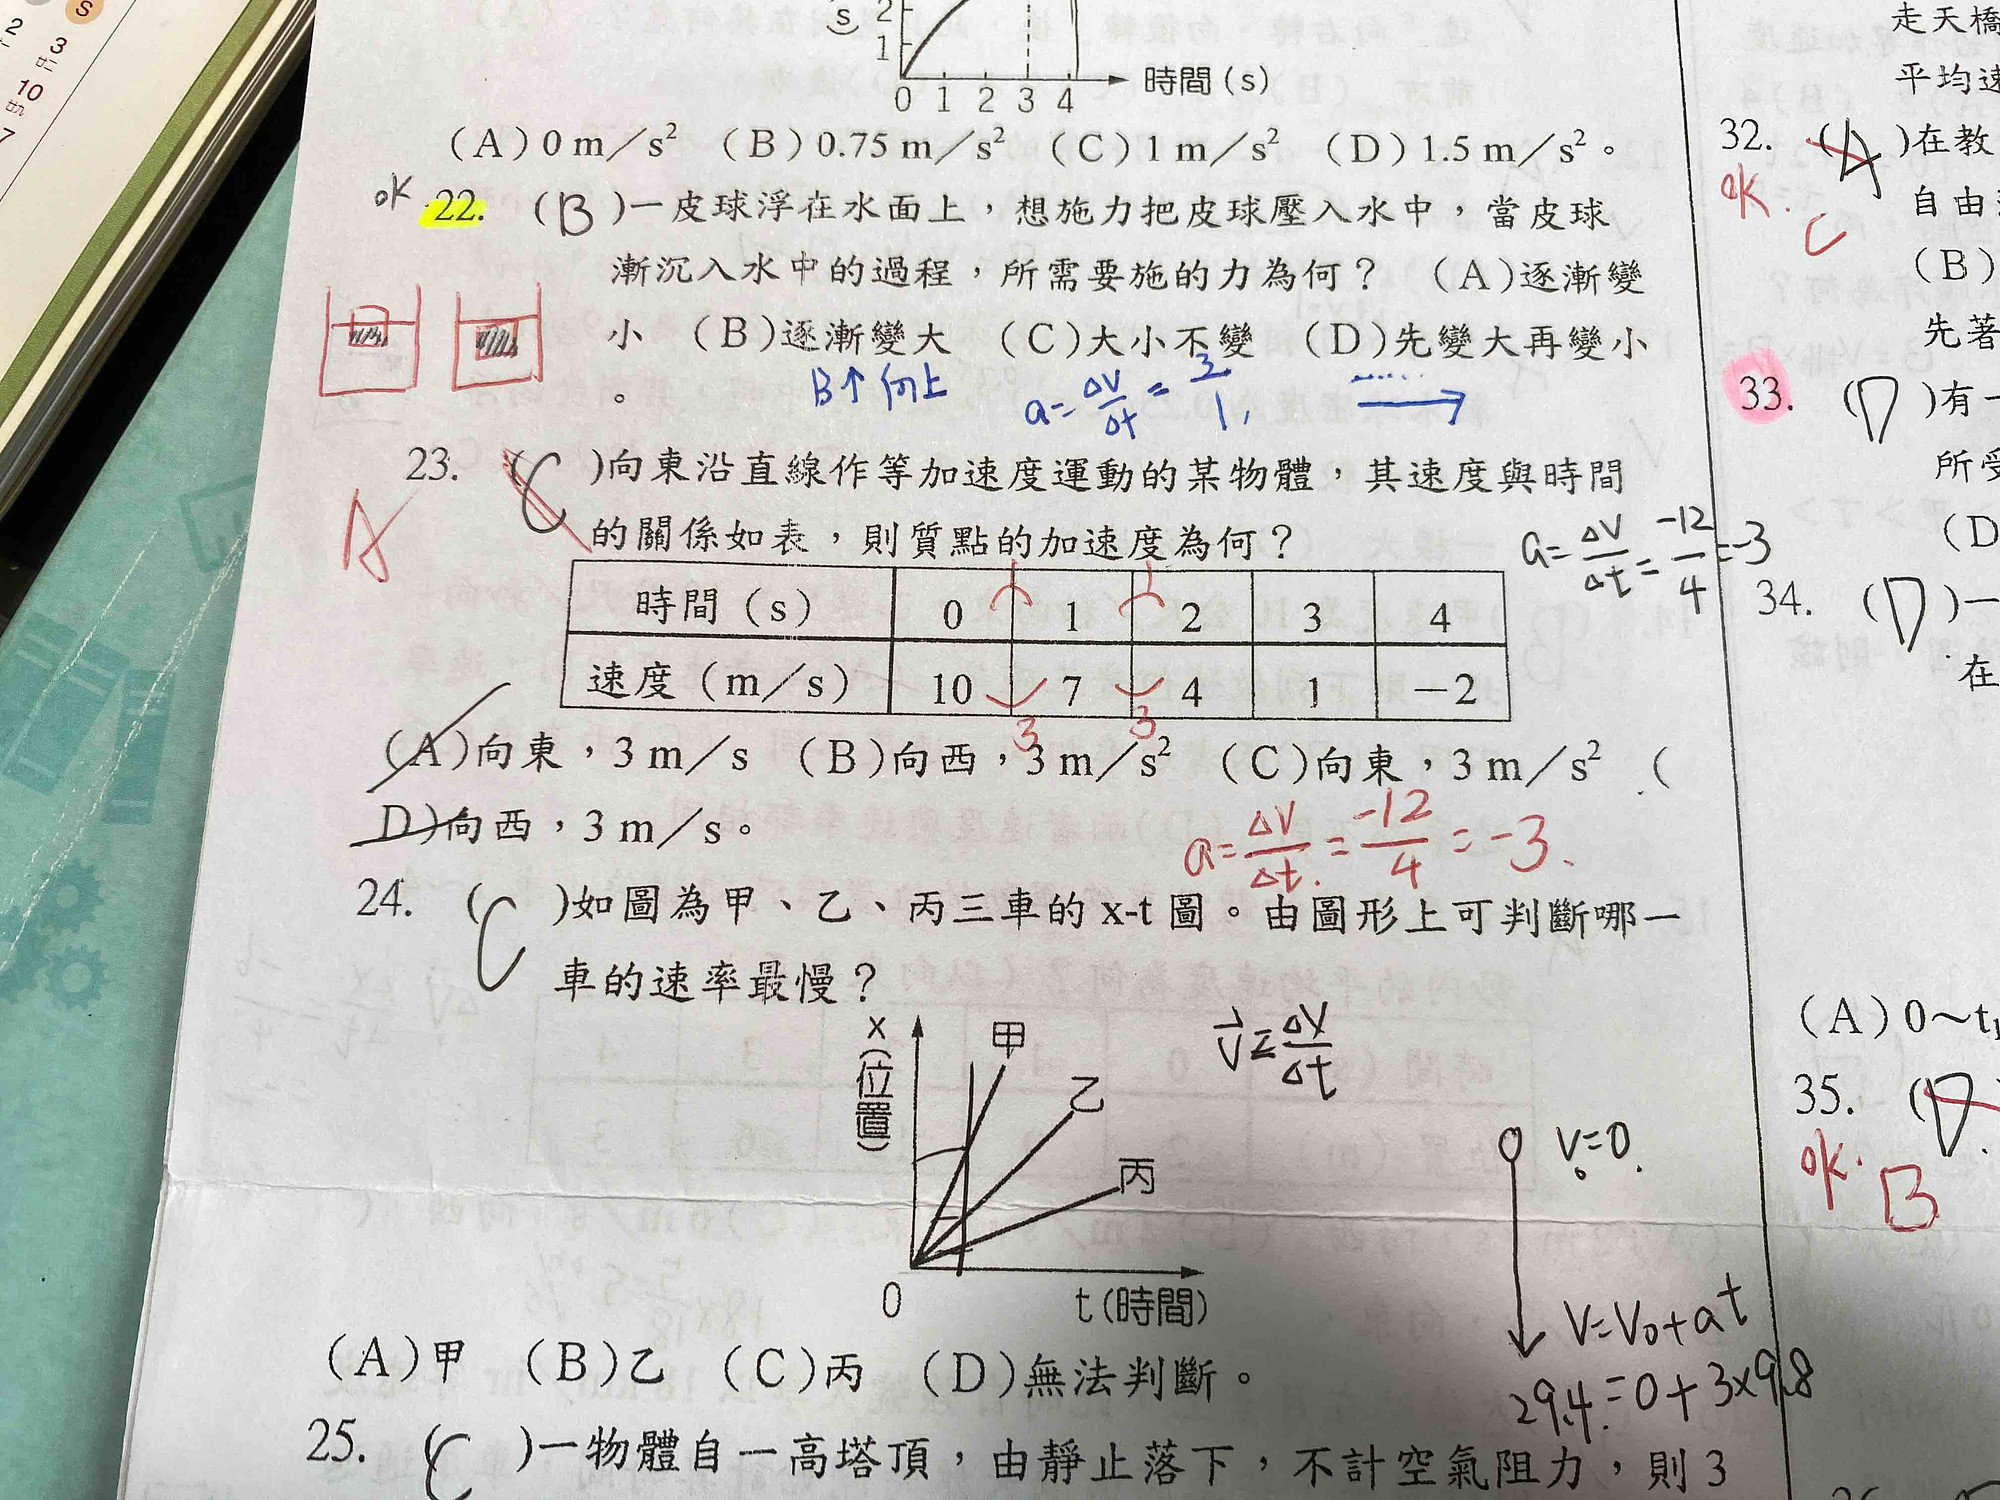 2
3
10
7
S
s)
2
1
0 1 2 3 4
時間(s)
(A)0 m/s² (B)0.75 m/s² (C)1 m/s² (D)1.5 m/s²。
ok 22. (B)一皮球浮在水面上,想施力把皮球壓入水中,當皮球
漸沉入水中的過程,所需要施的力為何? (A)逐漸變
小 (B)逐漸變大 (C)大小不變 (D)先變大再變小
。
B↑向上
a=ΔV/Δt=3/1
23. (C)向東沿直線作等加速度運動的某物體,其速度與時間
A
的關係如表,則質點的加速度為何?
a=ΔV/Δt=-12/4=-3
時間(s) 0 1 2 3 4
速度(m/s) 10 7 4 1 -2
3 3
(A)向東,3 m/s (B)向西,3 m/s² (C)向東,3 m/s² (
D)向西,3 m/s。
a=ΔV/Δt=-12/4=-3
24. (C)如圖為甲、乙、丙三車的 x-t 圖。由圖形上可判斷哪一
車的速率最慢?
x(位置)
甲
乙
丙
0
t(時間)
V=ΔV/Δt
V₀=0
V=V₀+at
29.4=0+3×9.8
(A)甲 (B)乙 (C)丙 (D)無法判斷。
25. (C)一物體自一高塔頂,由靜止落下,不計空氣阻力,則 3
走天橋
平均速
32. (A)在教
ok. C
自由
(B)
先著
33. (D)有一
所受
(D
34. (D)一
在
(A)0~t₁
35. (D
ok. B